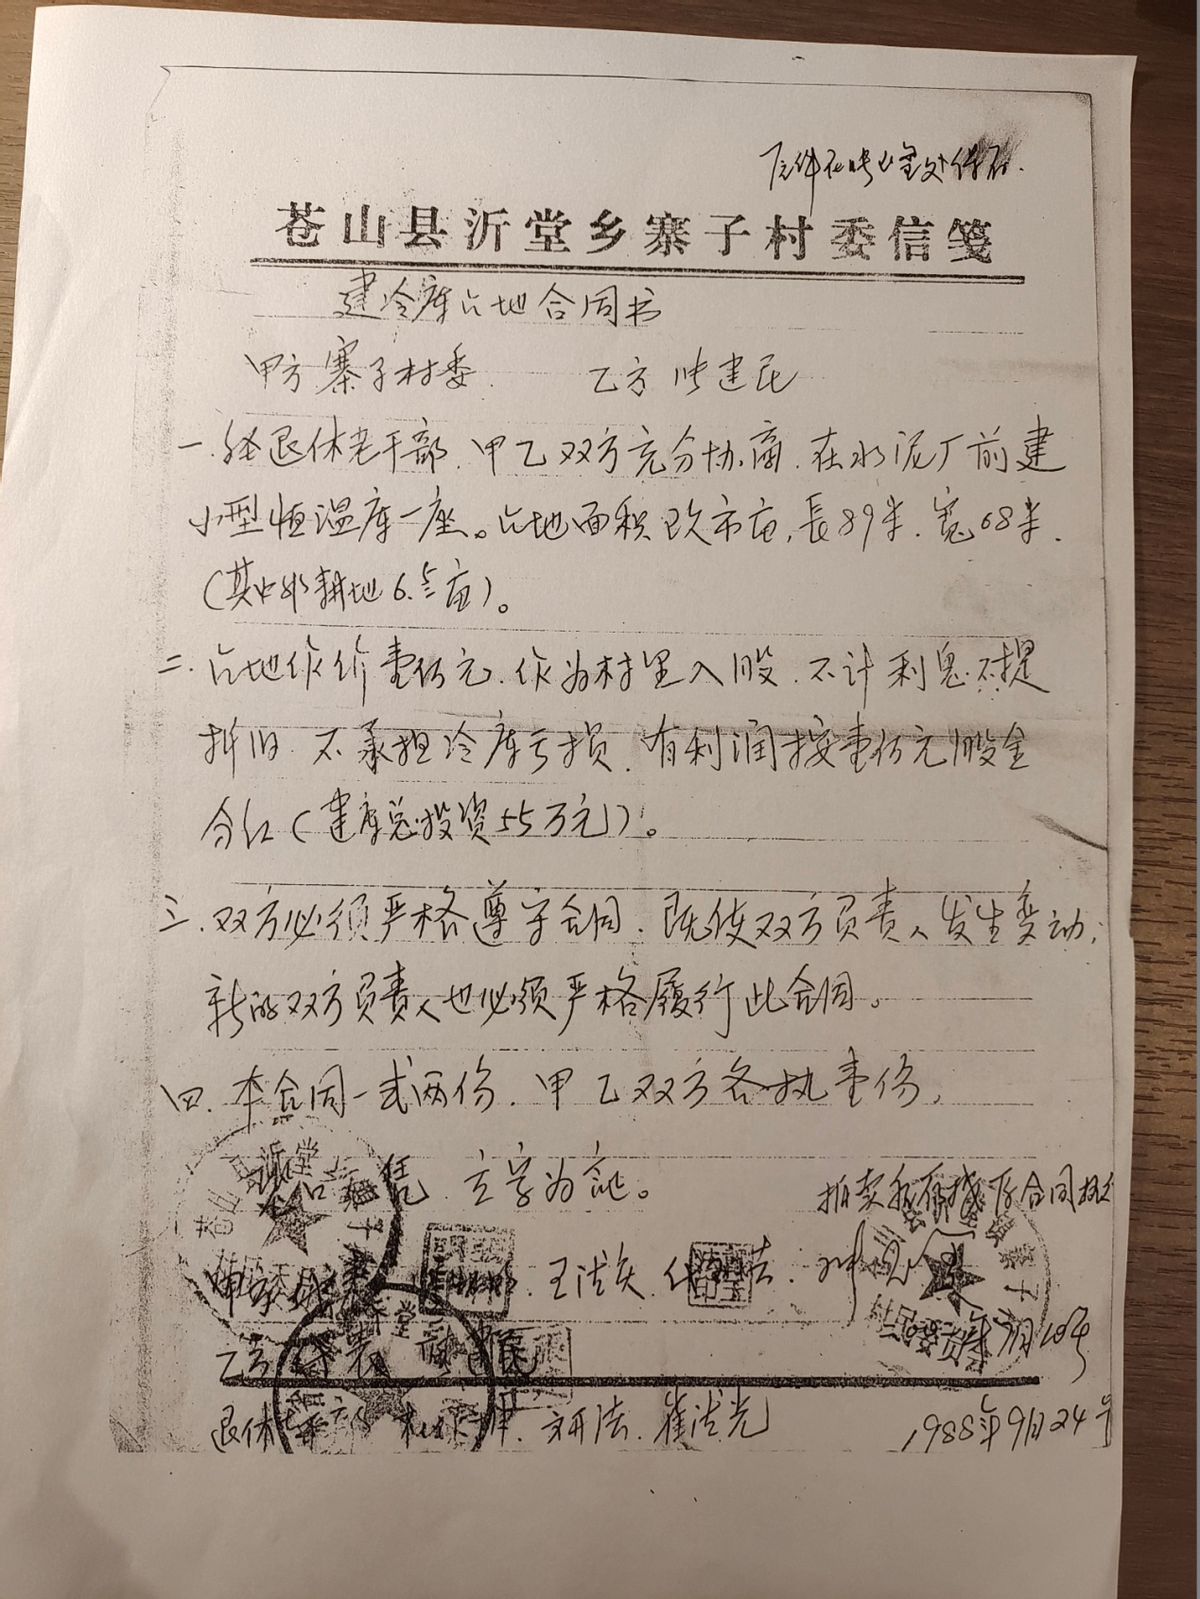 原件在
苍山县沂堂乡寨子村委信笺
建冷库占地合同书
甲方 寨子村委 乙方 张建民
一.经退休老干部.甲乙双方充分协商.在水泥厂前建
小型恒温库一座。占地面积玖市亩,長89米.宽68米.
(其中耕地6.5亩)。
二.占地作价壹仟元.作为村里入股.不计利息.不提
折旧 不承担冷库亏损.有利润按壹仟元股金
分红(建库总投资55万元)。
三.双方必须严格遵守合同.既使双方负责人发生变动;
新的双方负责人也必须严格履行此合同。
四.本合同一式两份.甲乙双方各执壹份,
凭.立字为证。
拍卖 合同
甲方代表
乙方代表
退休干部 崔法光
1988年9月24号